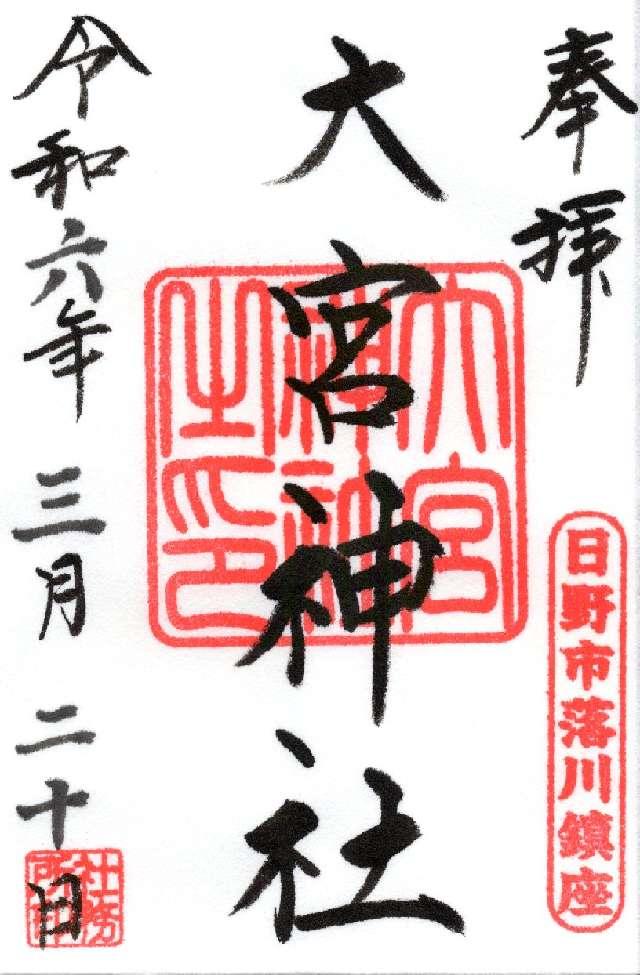 奉拝
日野市落川鎮座
大宮神社
大宮神社之印
令和六年三月二十日